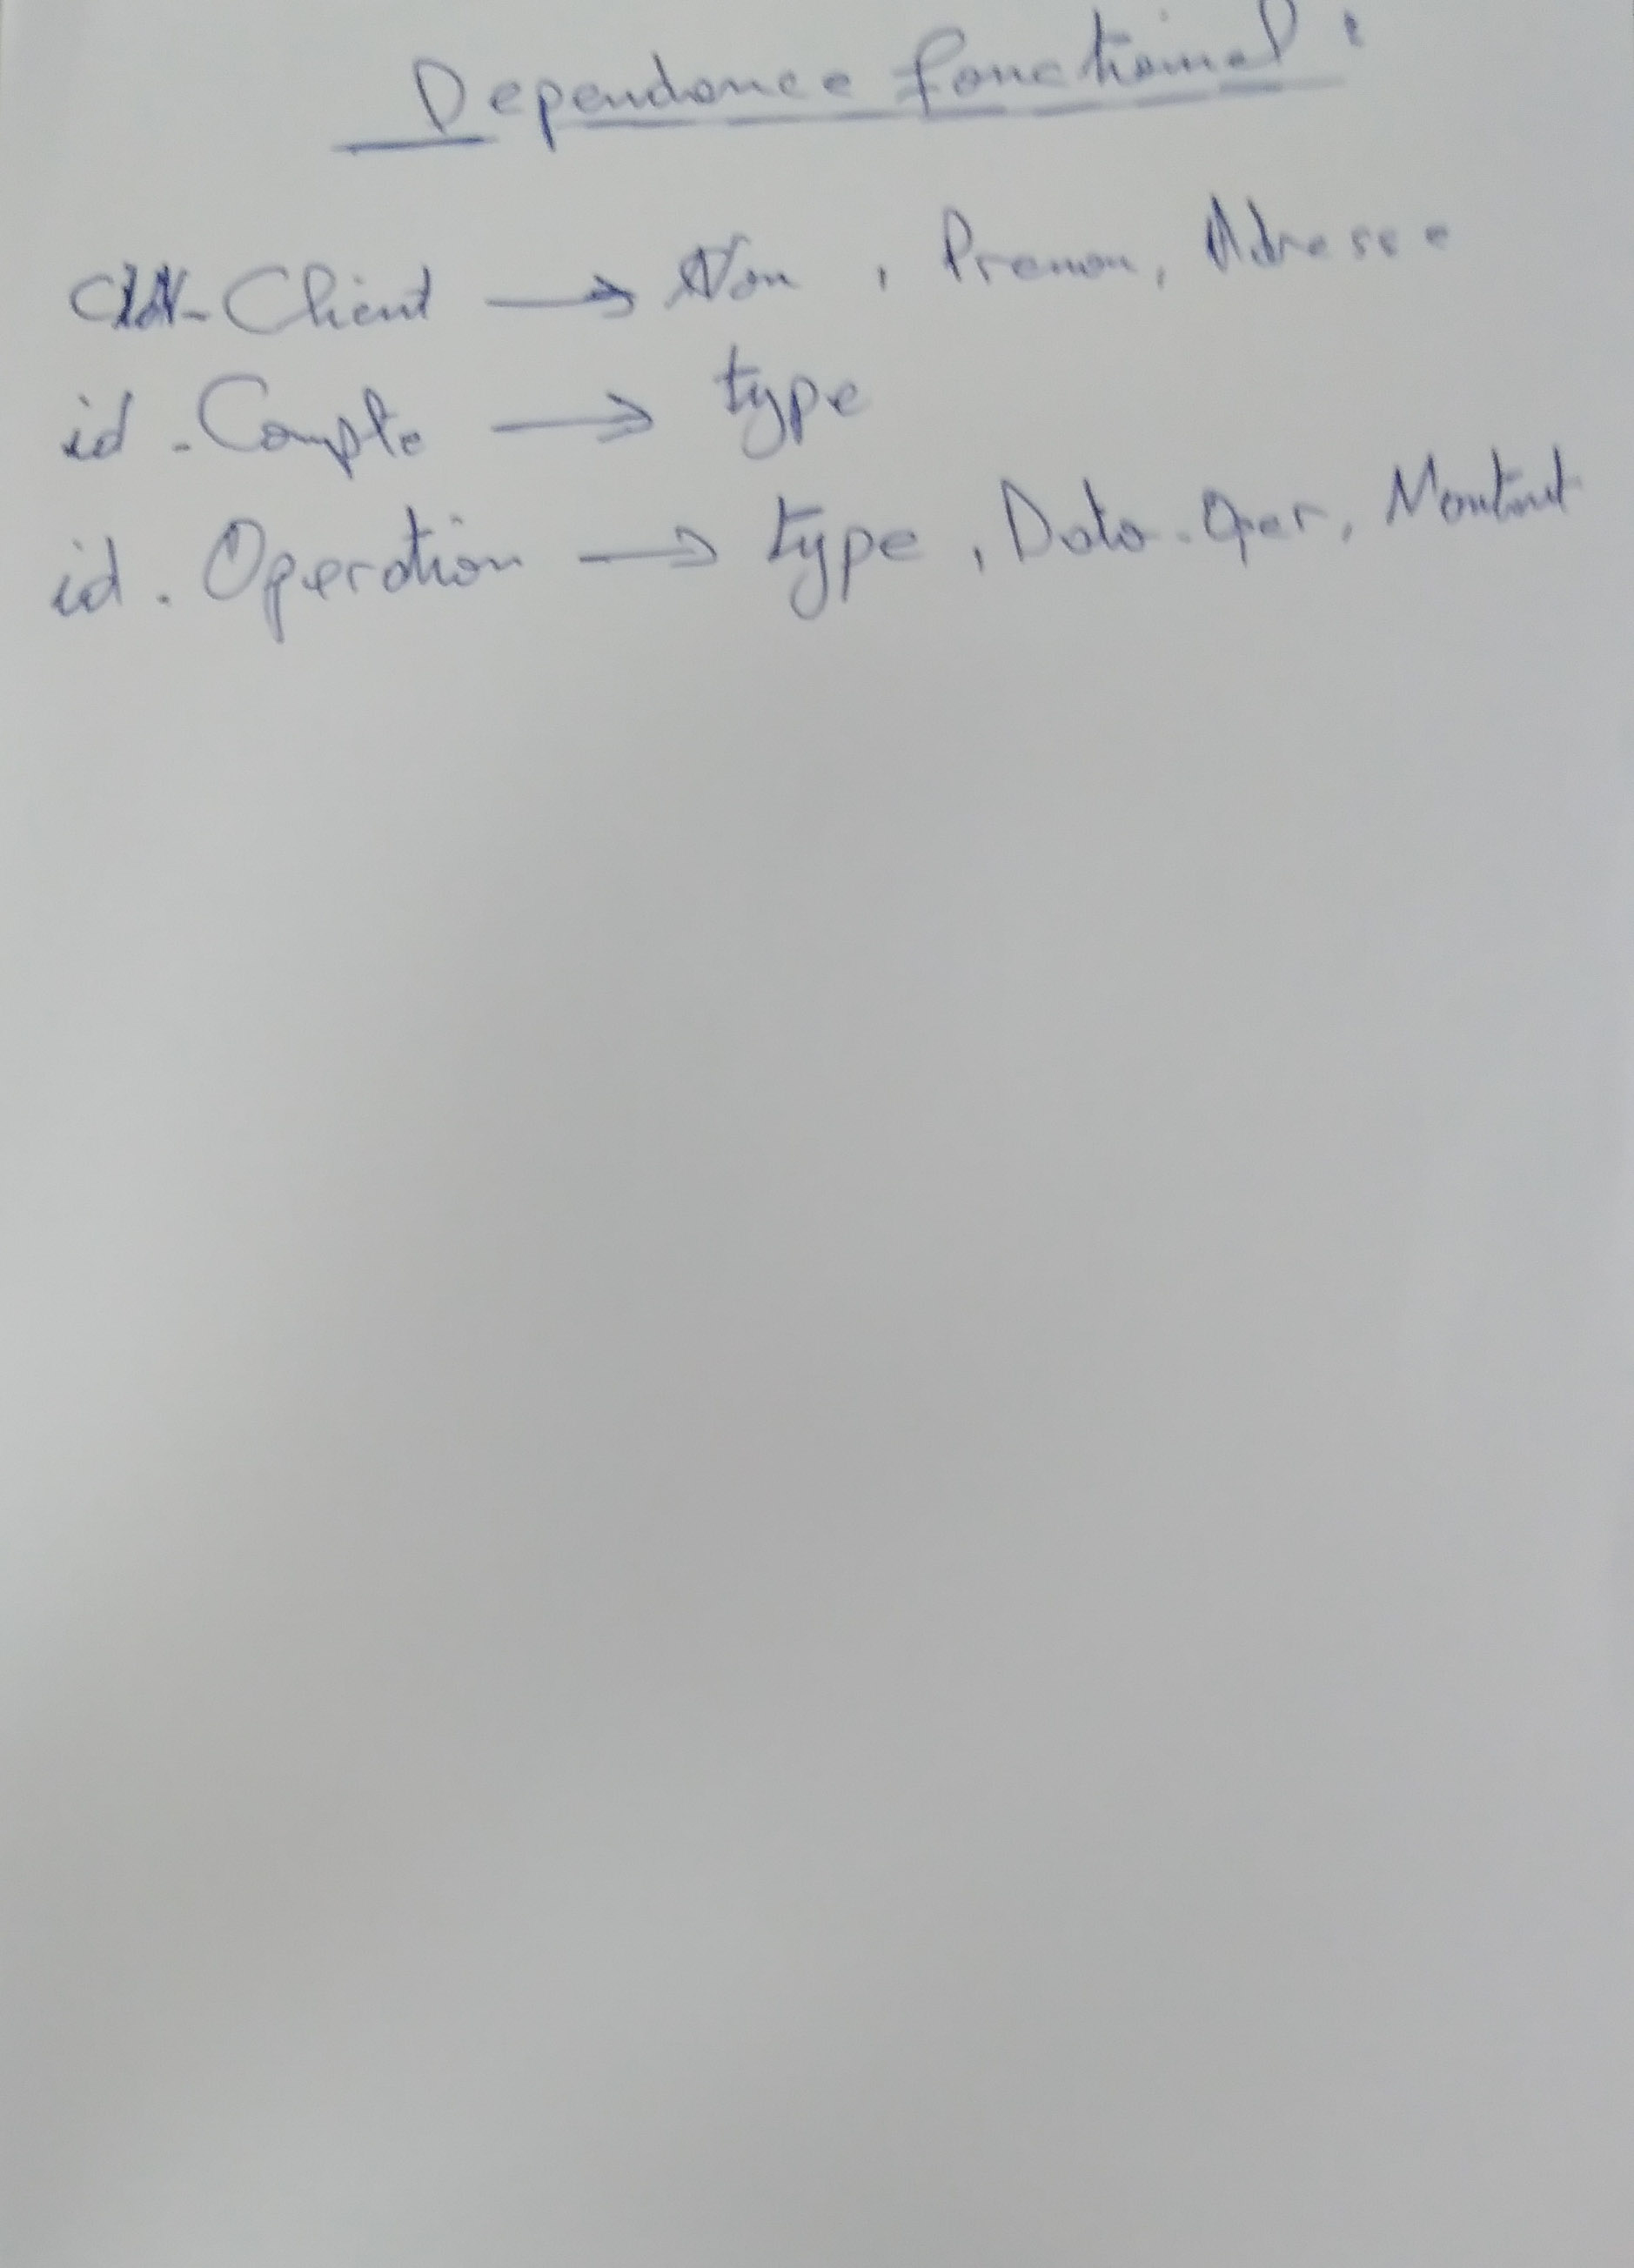 Dependance fonctionnel :
CIN-Client → Nom , Prenom, Adresse
id-Compte → type
id-Operation → type , Date-Oper, Montant